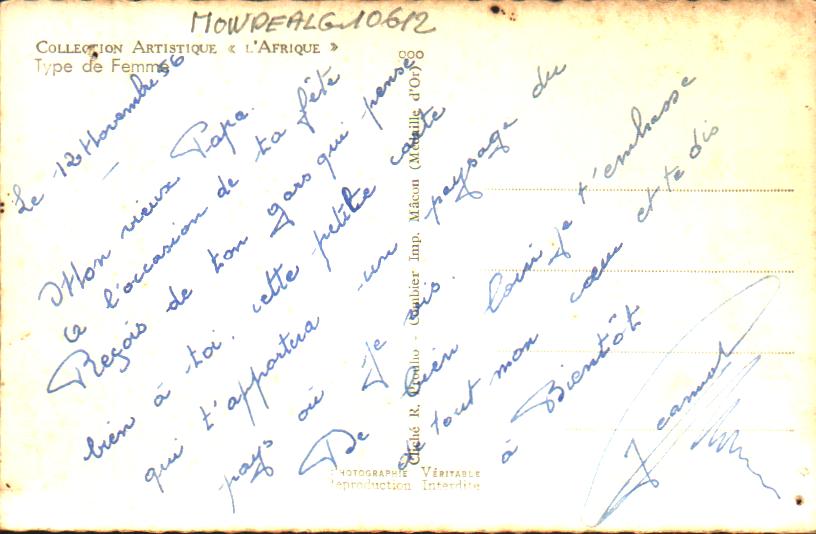 MOWDEALG10612
COLLECTION ARTISTIQUE « L'AFRIQUE »
Type de Femme
Le 12 Novembre 56
Mon vieux Papa.
à l'occasion de ta fête
Reçois de ton gars qui pense
bien à toi. cette petite carte
qui t'apportera un paysage du
pays où je suis.
De bien loin je t'embrasse
de tout mon cœur et te dis
à Bientôt
Cliché R. Prouho - Combier Imp. Mâcon (Médaille d'Or)
PHOTOGRAPHIE VÉRITABLE
Reproduction Interdite